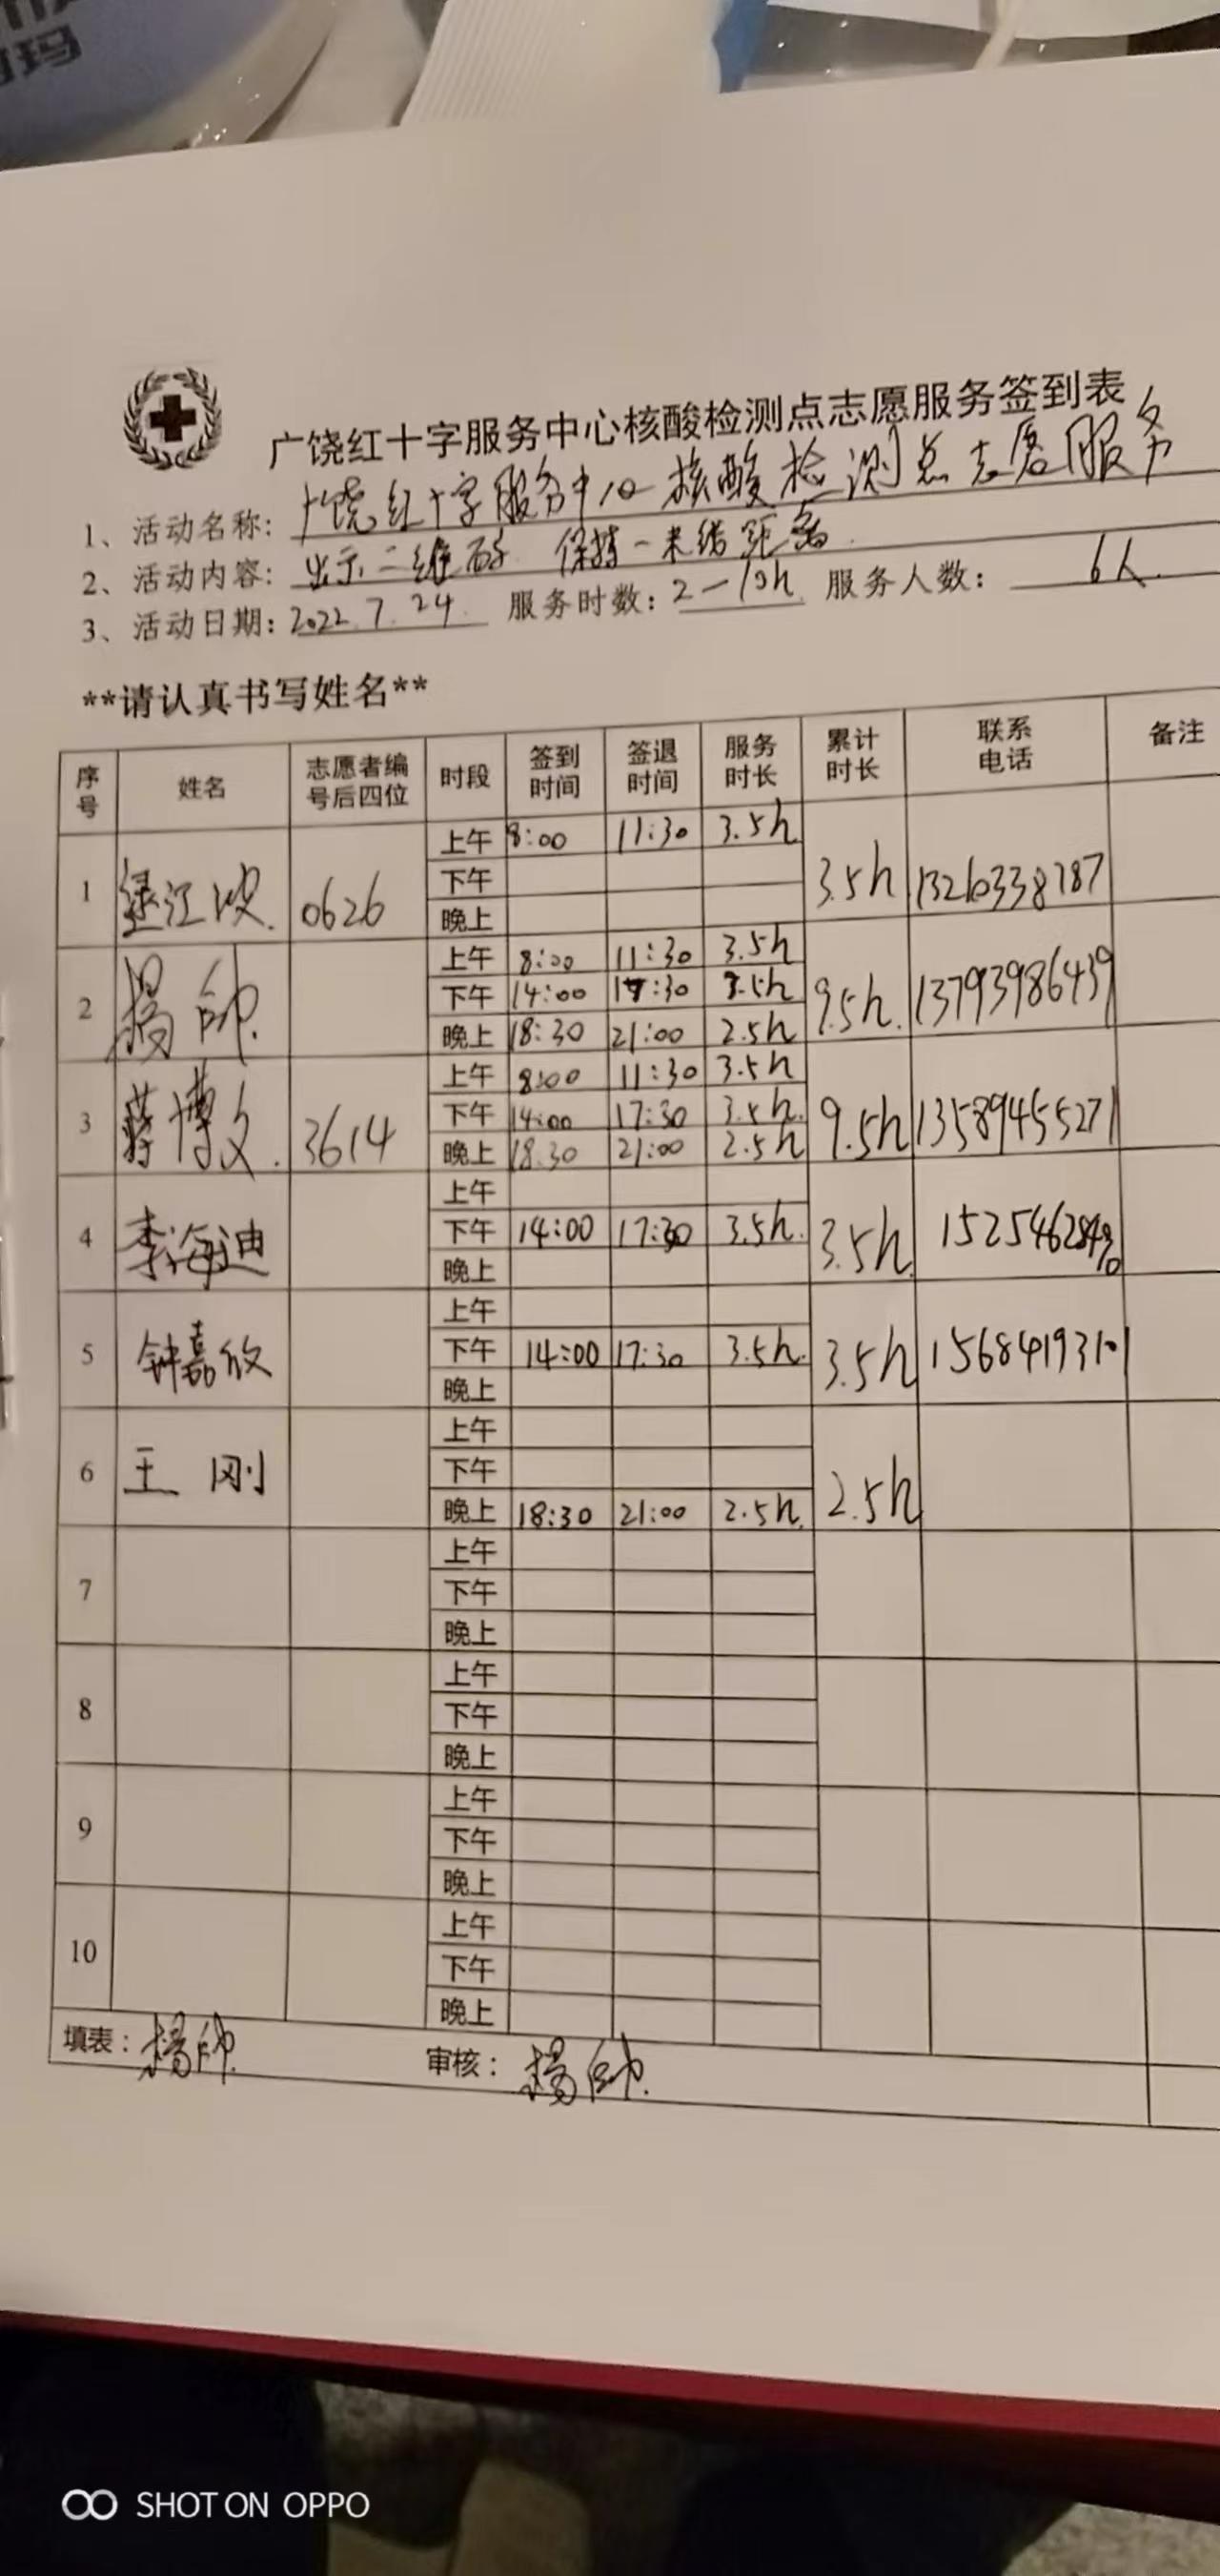 玛
广饶红十字服务中心核酸检测点志愿服务签到表
1、活动名称: 广饶红十字服务中心核酸检测点志愿服务
2、活动内容: 出示二维码 保持一米线距离
3、活动日期: 2022.7.24 服务时数: 2—10h 服务人数: 6人
**请认真书写姓名**
序号 姓名 志愿者编号后四位 时段 签到时间 签退时间 服务时长 累计时长 联系电话 备注
上午 8:00 11:30 3.5h
1 江波 0626 下午 3.5h 13260338787
晚上
上午 8:00 11:30 3.5h
2 杨帅 下午 14:00 17:30 3.5h 9.5h 13793986439
晚上 18:30 21:00 2.5h
上午 8:00 11:30 3.5h
3 蒋博文 3614 下午 14:00 17:30 3.5h 9.5h 13589455271
晚上 18:30 21:00 2.5h
上午
4 李海迪 下午 14:00 17:30 3.5h 3.5h
晚上
上午
5 钟嘉欣 下午 14:00 17:30 3.5h 3.5h 15684193101
晚上
上午
6 王刚 下午 2.5h
晚上 18:30 21:00 2.5h
上午
7 下午
晚上
上午
8 下午
晚上
上午
9 下午
晚上
上午
10 下午
晚上
填表: 杨帅 审核: 杨帅
SHOT ON OPPO